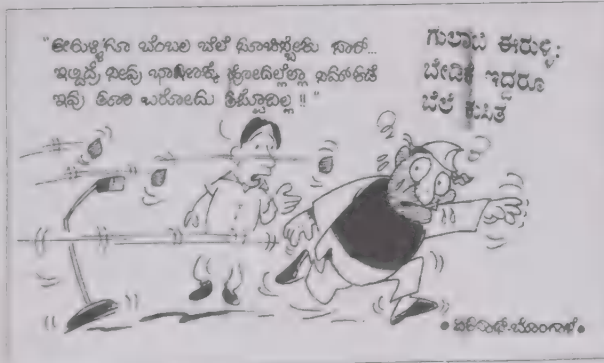 "ಈರುಳ್ಳಿಗೂ ಬೆಂಬಲ ಬೆಲೆ ಸೂಚಿಸ್ಬೇಕು ಸಾರ್...
ಇಲ್ದಿದ್ರೆ ನೀವು ಭಾಷಣಕ್ಕೆ ಹೋದಲ್ಲೆಲ್ಲಾ ನಿಮ್ಕಡೆ
ಇವು ತೂರಿ ಬರೋದು ತಪ್ಪೋದಿಲ್ಲ !!"
ಗುಲಾಬಿ ಈರುಳ್ಳಿ:
ಬೇಡಿಕೆ ಇದ್ದರೂ
ಬೆಲೆ ಕುಸಿತ